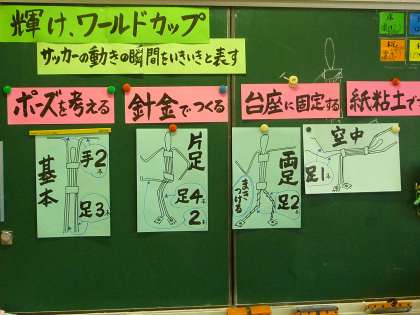 輝け、ワールドカップ
サッカーの動きの瞬間をいきいきと表す
ポーズを考える
針金でつくる
台座に固定する
紙粘土で
基本
手2本
足3本
片足
足4本
2本
両足
足2本
まきつける
空中
足1本